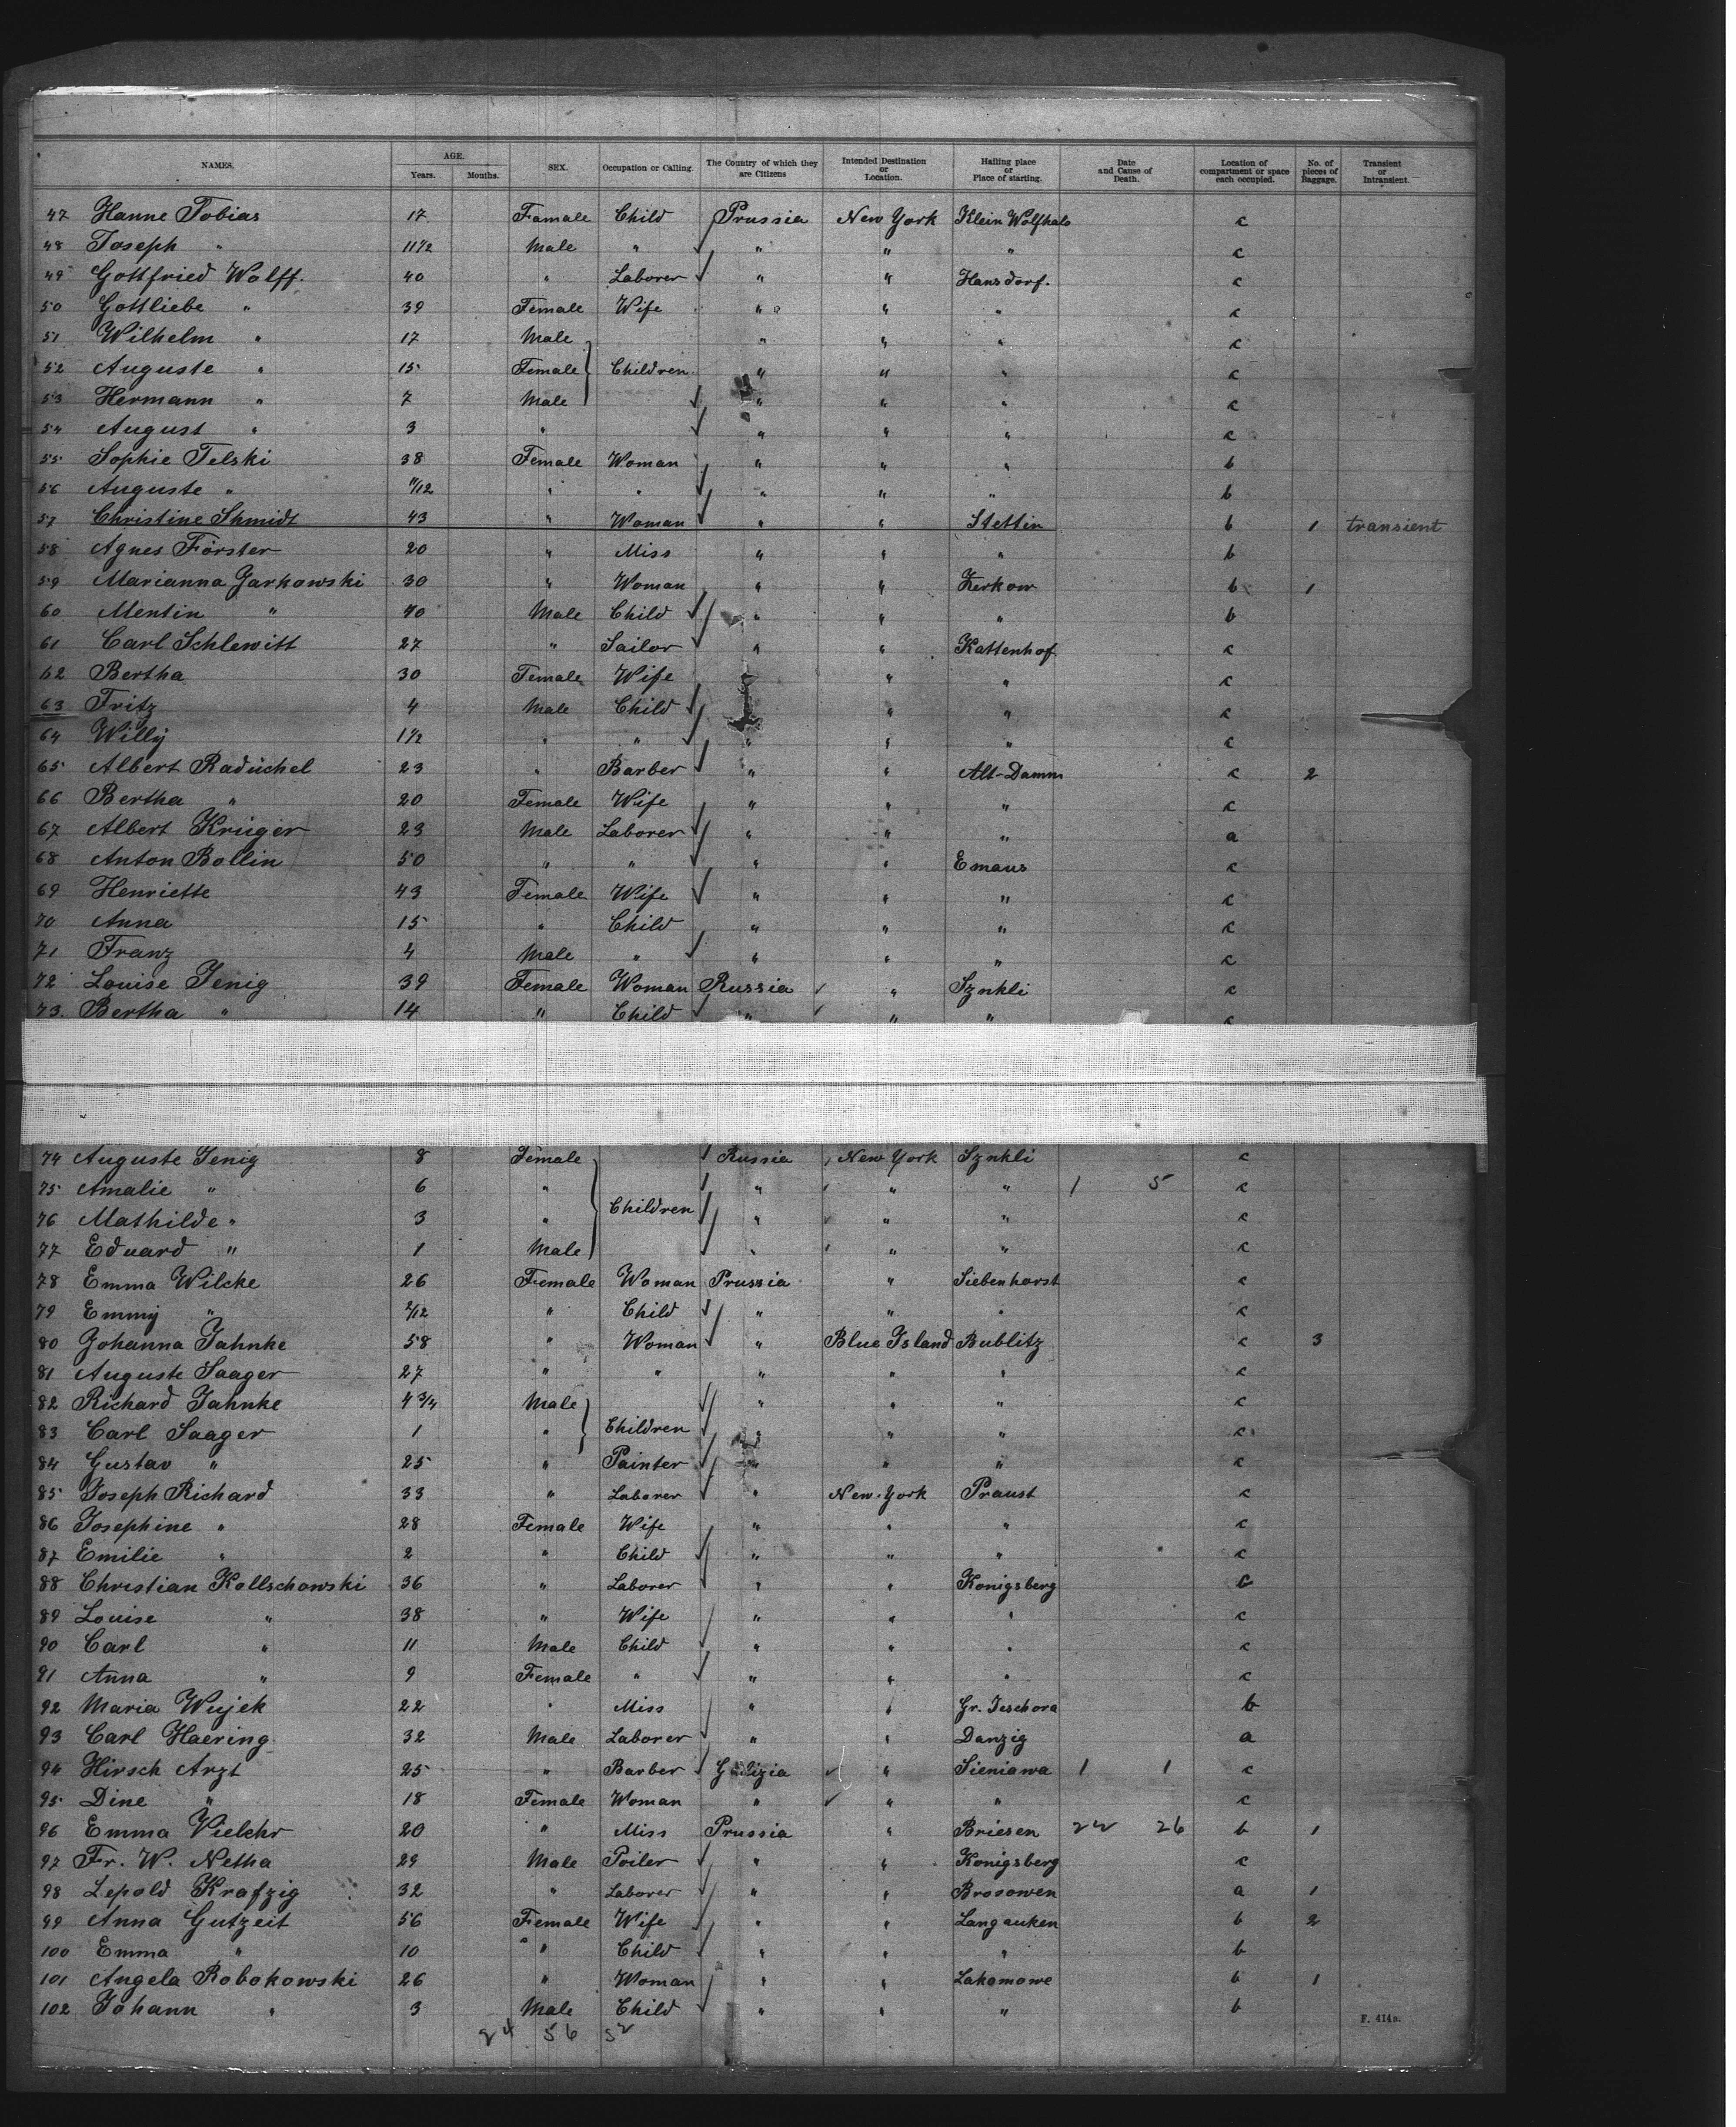 NAMES. AGE. Years. Months. SEX. Occupation or Calling. The Country of which they are Citizens Intended Destination or Location. Hailing place or Place of starting. Date and Cause of Death. Location of compartment or space each occupied. No. of pieces of Baggage. Transient or Intransient.
47 Hanne Tobias 17 Famale Child Prussia New York Klein Wolfhals c
48 Joseph " 11 1/2 Male " " " " c
49 Gottfried Wolff. 40 " Laborer " " Hansdorf. c
50 Gottliebe " 39 Female Wife " " " c
51 Wilhelm " 17 Male " " " c
52 Auguste " 15 Female Children " " " c
53 Hermann " 7 Male " " " c
54 August " 3 " " " " c
55 Sophie Telski 38 Female Woman " " " b
56 Auguste " 11/12 " " " " " b
57 Christine Shmidt 43 " Woman " " Stettin b 1 transient
58 Agnes Förster 20 " Miss " " " b
59 Marianna Garkowski 30 " Woman " " Zerkow b 1
60 Mentin " 40 Male Child " " " b
61 Carl Schlewitt 27 " Sailor " " Kattenhof c
62 Bertha 30 Female Wife " " " c
63 Fritz 4 Male Child " " c
64 Willy 1 1/2 " " " " " c
65 Albert Radüchel 23 " Barber " " Alt-Damm c 2
66 Bertha " 20 Female Wife " " " c
67 Albert Krüger 23 Male Laborer " " " a
68 Anton Bollin 50 " " " " Emaus c
69 Henriette 43 Female Wife " " " c
70 Anna 15 " Child " " " c
71 Franz 4 Male " " " " c
72 Louise Jenig 39 Female Woman Russia " Sznkli c
73. Bertha " 14 " Child " " " c
74 Auguste Jenig 8 Female Russia New York Sznkli c
75 Amalie " 6 " Children " " " 1 5 c
76 Mathilde " 3 " " " " c
77 Eduard " 1 Male " " " c
78 Emma Wilcke 26 Female Woman Prussia " Siebenhorst c
79 Emmy " 2/12 " Child " " " c
80 Johanna Jahnke 58 " Woman " Blue Island Bublitz c 3
81 Auguste Saager 27 " " " " " c
82 Richard Jahnke 4 3/4 Male Children " " " c
83 Carl Saager 1 " " " " c
84 Gustav " 25 " Painter " " " c
85 Joseph Richard 33 " Laborer " New York Praust c
86 Josephine " 28 Female Wife " " " c
87 Emilie " 2 " Child " " " c
88 Christian Kollschowski 36 " Laborer " " Konigsberg c
89 Louise " 38 " Wife " " " c
90 Carl " 11 Male Child " " " c
91 Anna " 9 Female " " " " c
92 Maria Wujek 22 " Miss " " Gr. Jeschora b
93 Carl Haering 32 Male Laborer " " Danzig a
94 Hirsch Arzt 25 " Barber Galizia " Sieniawa 1 1 c
95 Dine " 18 Female Woman " " " c
96 Emma Vielehr 20 " Miss Prussia " Briesen 22 26 b 1
97 Fr. W. Netha 29 Male Poiler " " Konigsberg c
98 Lepold Krafzig 32 " Laborer " " Brosowen a 1
99 Anna Gutzeit 56 Female Wife " " Langauken b 2
100 Emma " 10 " Child " " " b
101 Angela Robokowski 26 " Woman " " Lakomowe b 1
102 Johann " 3 Male Child " " " b
24 56 52
F. 414a.